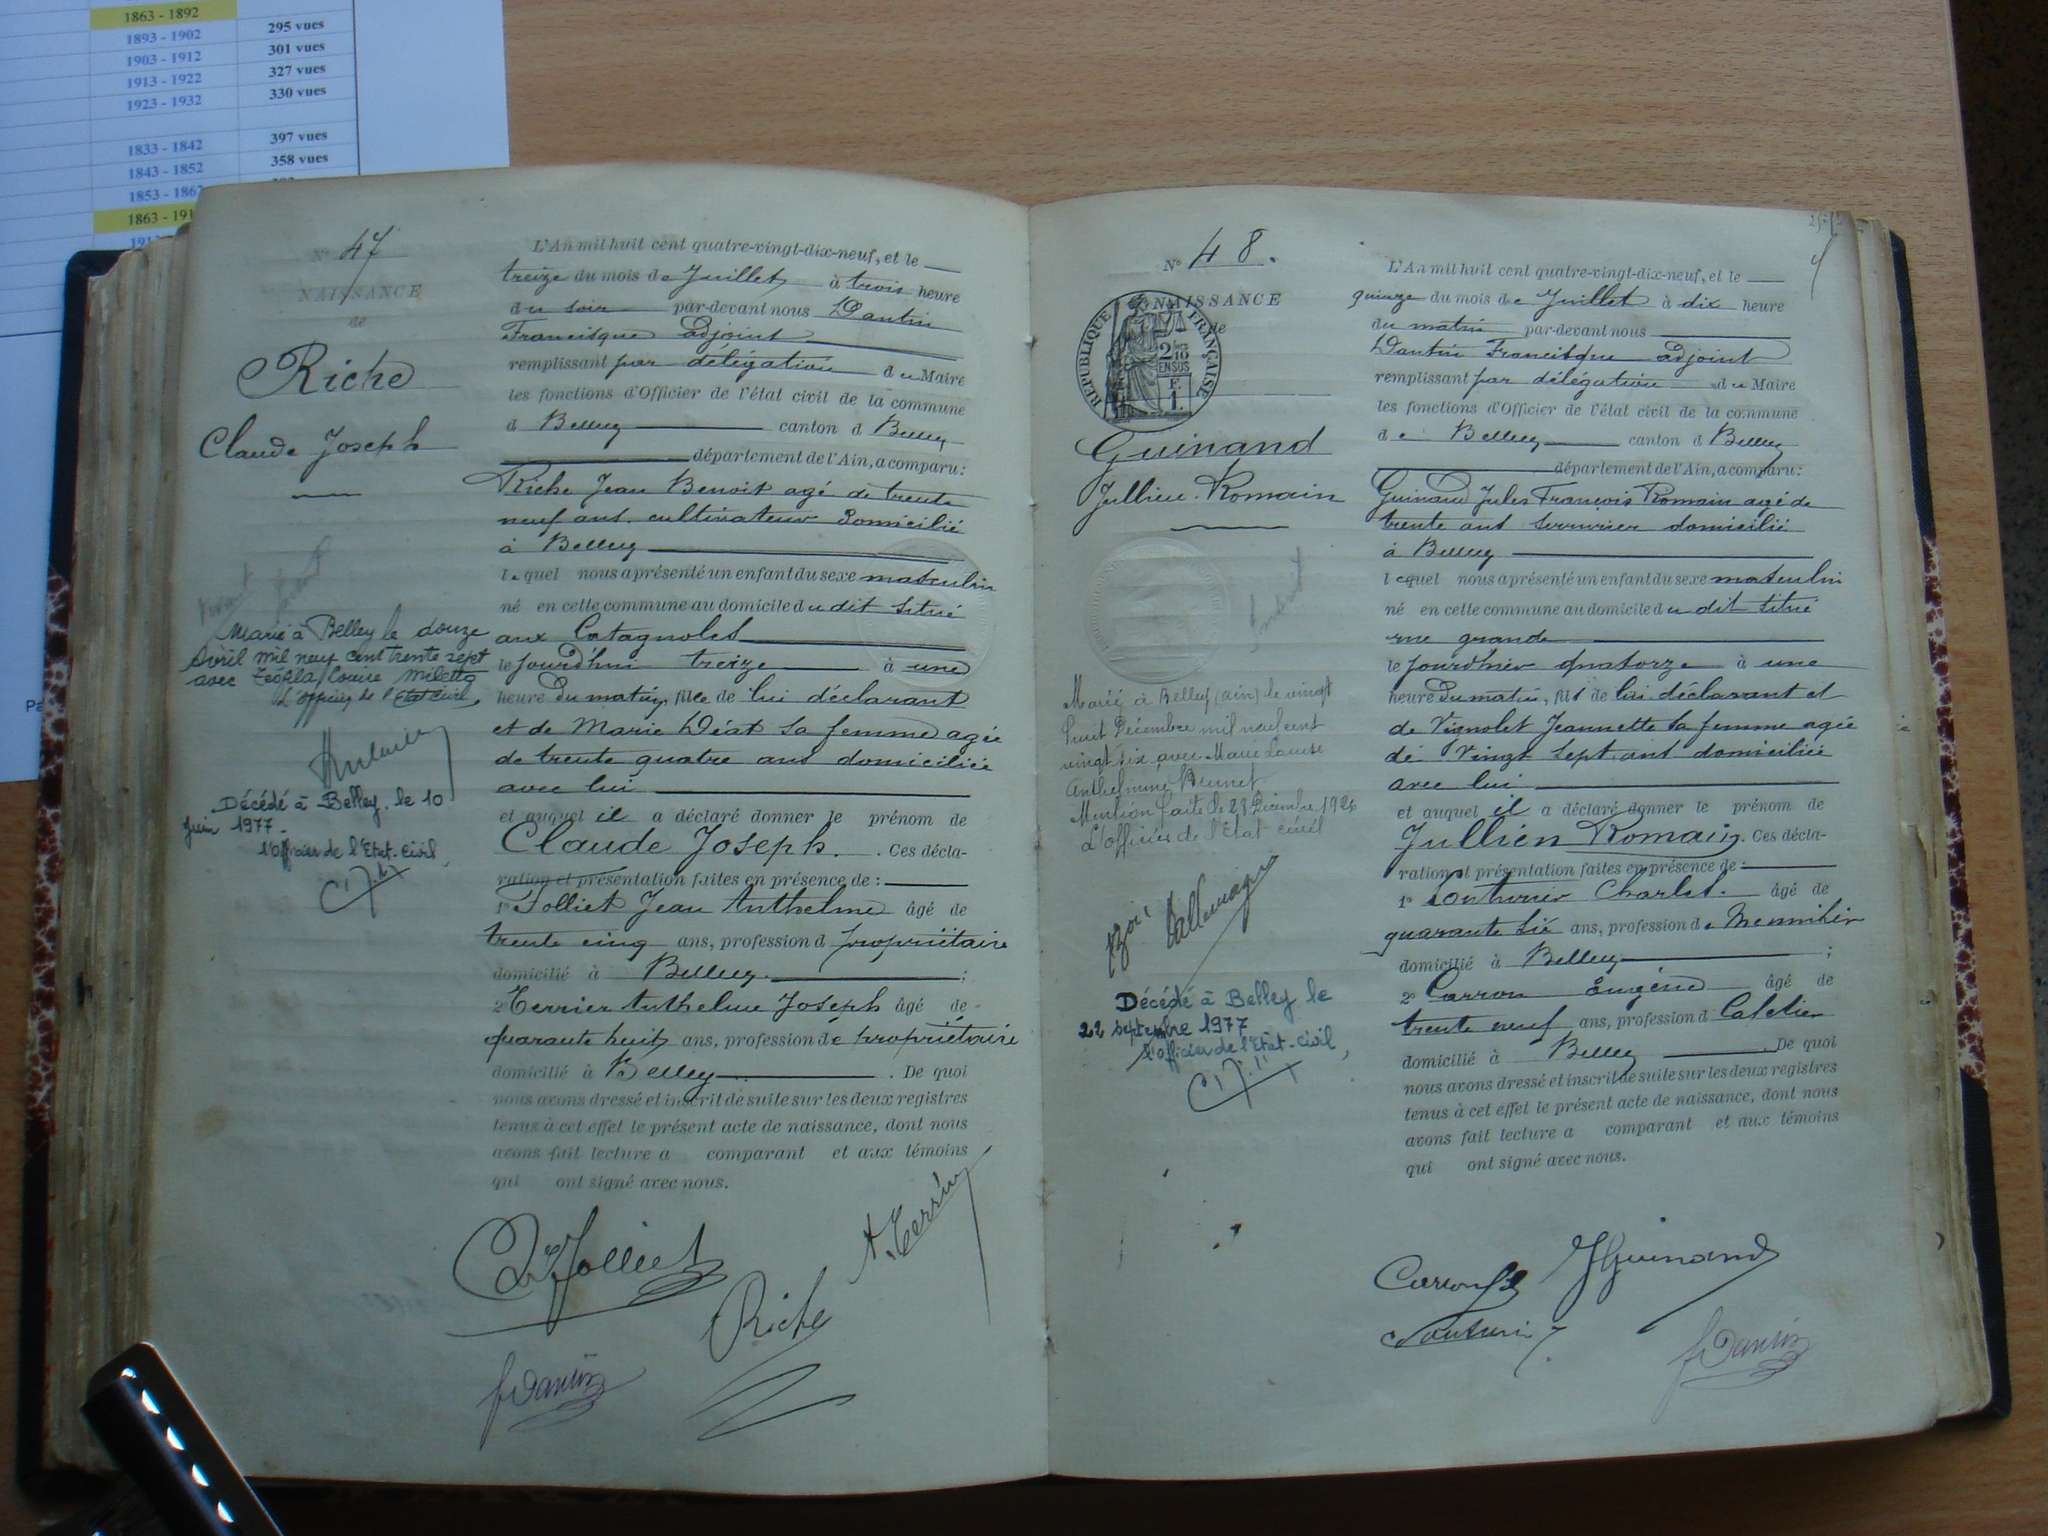 1863 - 1892
1893 - 1902 295 vues
1903 - 1912 301 vues
1913 - 1922 327 vues
1923 - 1932 330 vues
1833 - 1842 397 vues
1843 - 1852 358 vues
1853 - 186
1863 - 191
N° 47
NAISSANCE
de
Riche
Claude Joseph
Marié à Belley le douze
Avril mil neuf cent trente sept
avec Louise
L'officier de l'Etat Civil,
Décédé à Belley le 10
Juin 1977
l'Officier de l'Etat-Civil,
L'An mil huit cent quatre-vingt-dix-neuf, et le
treize du mois de Juillet à trois heure
du soir par-devant nous Dantin
Francisque adjoint
remplissant par délégation du Maire
les fonctions d'Officier de l'état civil de la commune
d Belley canton d Belley
département de l'Ain, a comparu :
Riche Jean Benoit agé de trente
neuf ans cultivateur domicilié
à Belley
lequel nous a présenté un enfant du sexe masculin
né en cette commune au domicile du dit situé
aux Catagnoles
le jourd'hui treize à une
heure du matin, fils de lui déclarant
et de Marie Déat sa femme agée
de trente quatre ans domiciliée
avec lui
et auquel il a déclaré donner le prénom de
Claude Joseph. Ces décla-
ration et présentation faites en présence de :
1° Jolliet Jean Anthelme âgé de
trente cinq ans, profession d propriétaire
domicilié à Belley ;
2° Terrier Anthelme Joseph âgé de
quarante huit ans, profession de propriétaire
domicilié à Belley. De quoi
nous avons dressé et inscrit de suite sur les deux registres
tenus à cet effet le présent acte de naissance, dont nous
avons fait lecture a comparant et aux témoins
qui ont signé avec nous.
Jolliet
Riche
F Dantin
N° 48.
NAISSANCE
de
REPUBLIQUE FRANÇAISE
2/10 EN SUS
F.
1.
Guinand
Jullien Romain
Marié à Belley (ain) le vingt
huit Décembre mil neuf cent
vingt six avec Marie Louise
Anthelmine Brunet
Mention faite le 28 Décembre 1926
L'officier de l'Etat civil
Décédé à Belley le
22 septembre 1977
l'officier de l'Etat-Civil,
L'An mil huit cent quatre-vingt-dix-neuf, et le
quinze du mois de Juillet à dix heure
du matin par-devant nous
Dantin Francisque adjoint
remplissant par délégation du Maire
les fonctions d'Officier de l'état civil de la commune
de Belley canton d Belley
département de l'Ain, a comparu :
Guinand Jules François Romain agé de
trente ans serrurier domicilié
à Belley
lequel nous a présenté un enfant du sexe masculin
né en cette commune au domicile du dit situé
rue grande
le jourd'hier quatorze à une
heure du matin, fils de lui déclarant et
de Vignolet Jeannette sa femme agée
de Vingt sept ans domiciliée
avec lui
et auquel il a déclaré donner le prénom de
Jullien Romain. Ces décla-
ration et présentation faites en présence de :
1° Charles. âgé de
quarante six ans, profession de Menuisier
domicilié à Belley ;
2° Carron Eugène âgé de
trente neuf ans, profession d Cafetier
domicilié à Belley De quoi
nous avons dressé et inscrit de suite sur les deux registres
tenus à cet effet le présent acte de naissance, dont nous
avons fait lecture a comparant et aux témoins
qui ont signé avec nous.
Carron
J Guinand
F Dantin